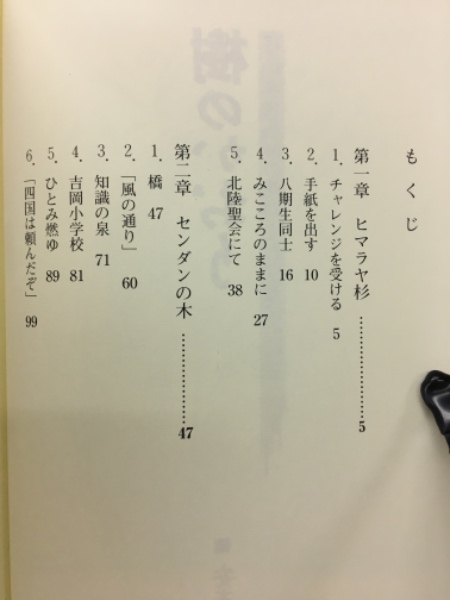 もくじ
第一章 ヒマラヤ杉 ………………… 5
1. チャレンジを受ける 5
2. 手紙を出す 10
3. 八期生同士 16
4. みこころのままに 27
5. 北陸聖会にて 38
第二章 センダンの木 ………………… 47
1. 橋 47
2. 「風の通り」 60
3. 知識の泉 71
4. 吉岡小学校 81
5. ひとみ燃ゆ 89
6. 「四国は頼んだぞ」 99